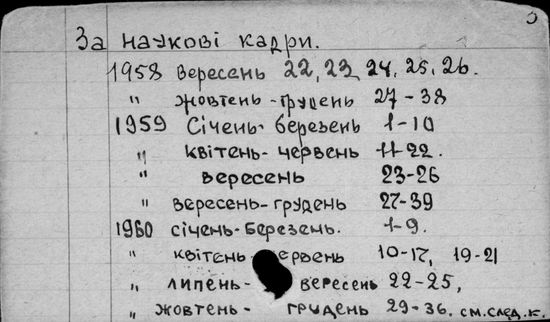 За наукові кадри.
1958 вересень 22, 23, 24, 25, 26.
" жовтень-грудень 27-38
1959 Січень-березень 1-10
" квітень-червень 11-22.
" вересень 23-26
" вересень-грудень 27-39
1960 січень-березень. 1-9.
" квітень- ервень 10-17, 19-21
" липень- вересень 22-25,
" жовтень- грудень 29-36. см. след. к.